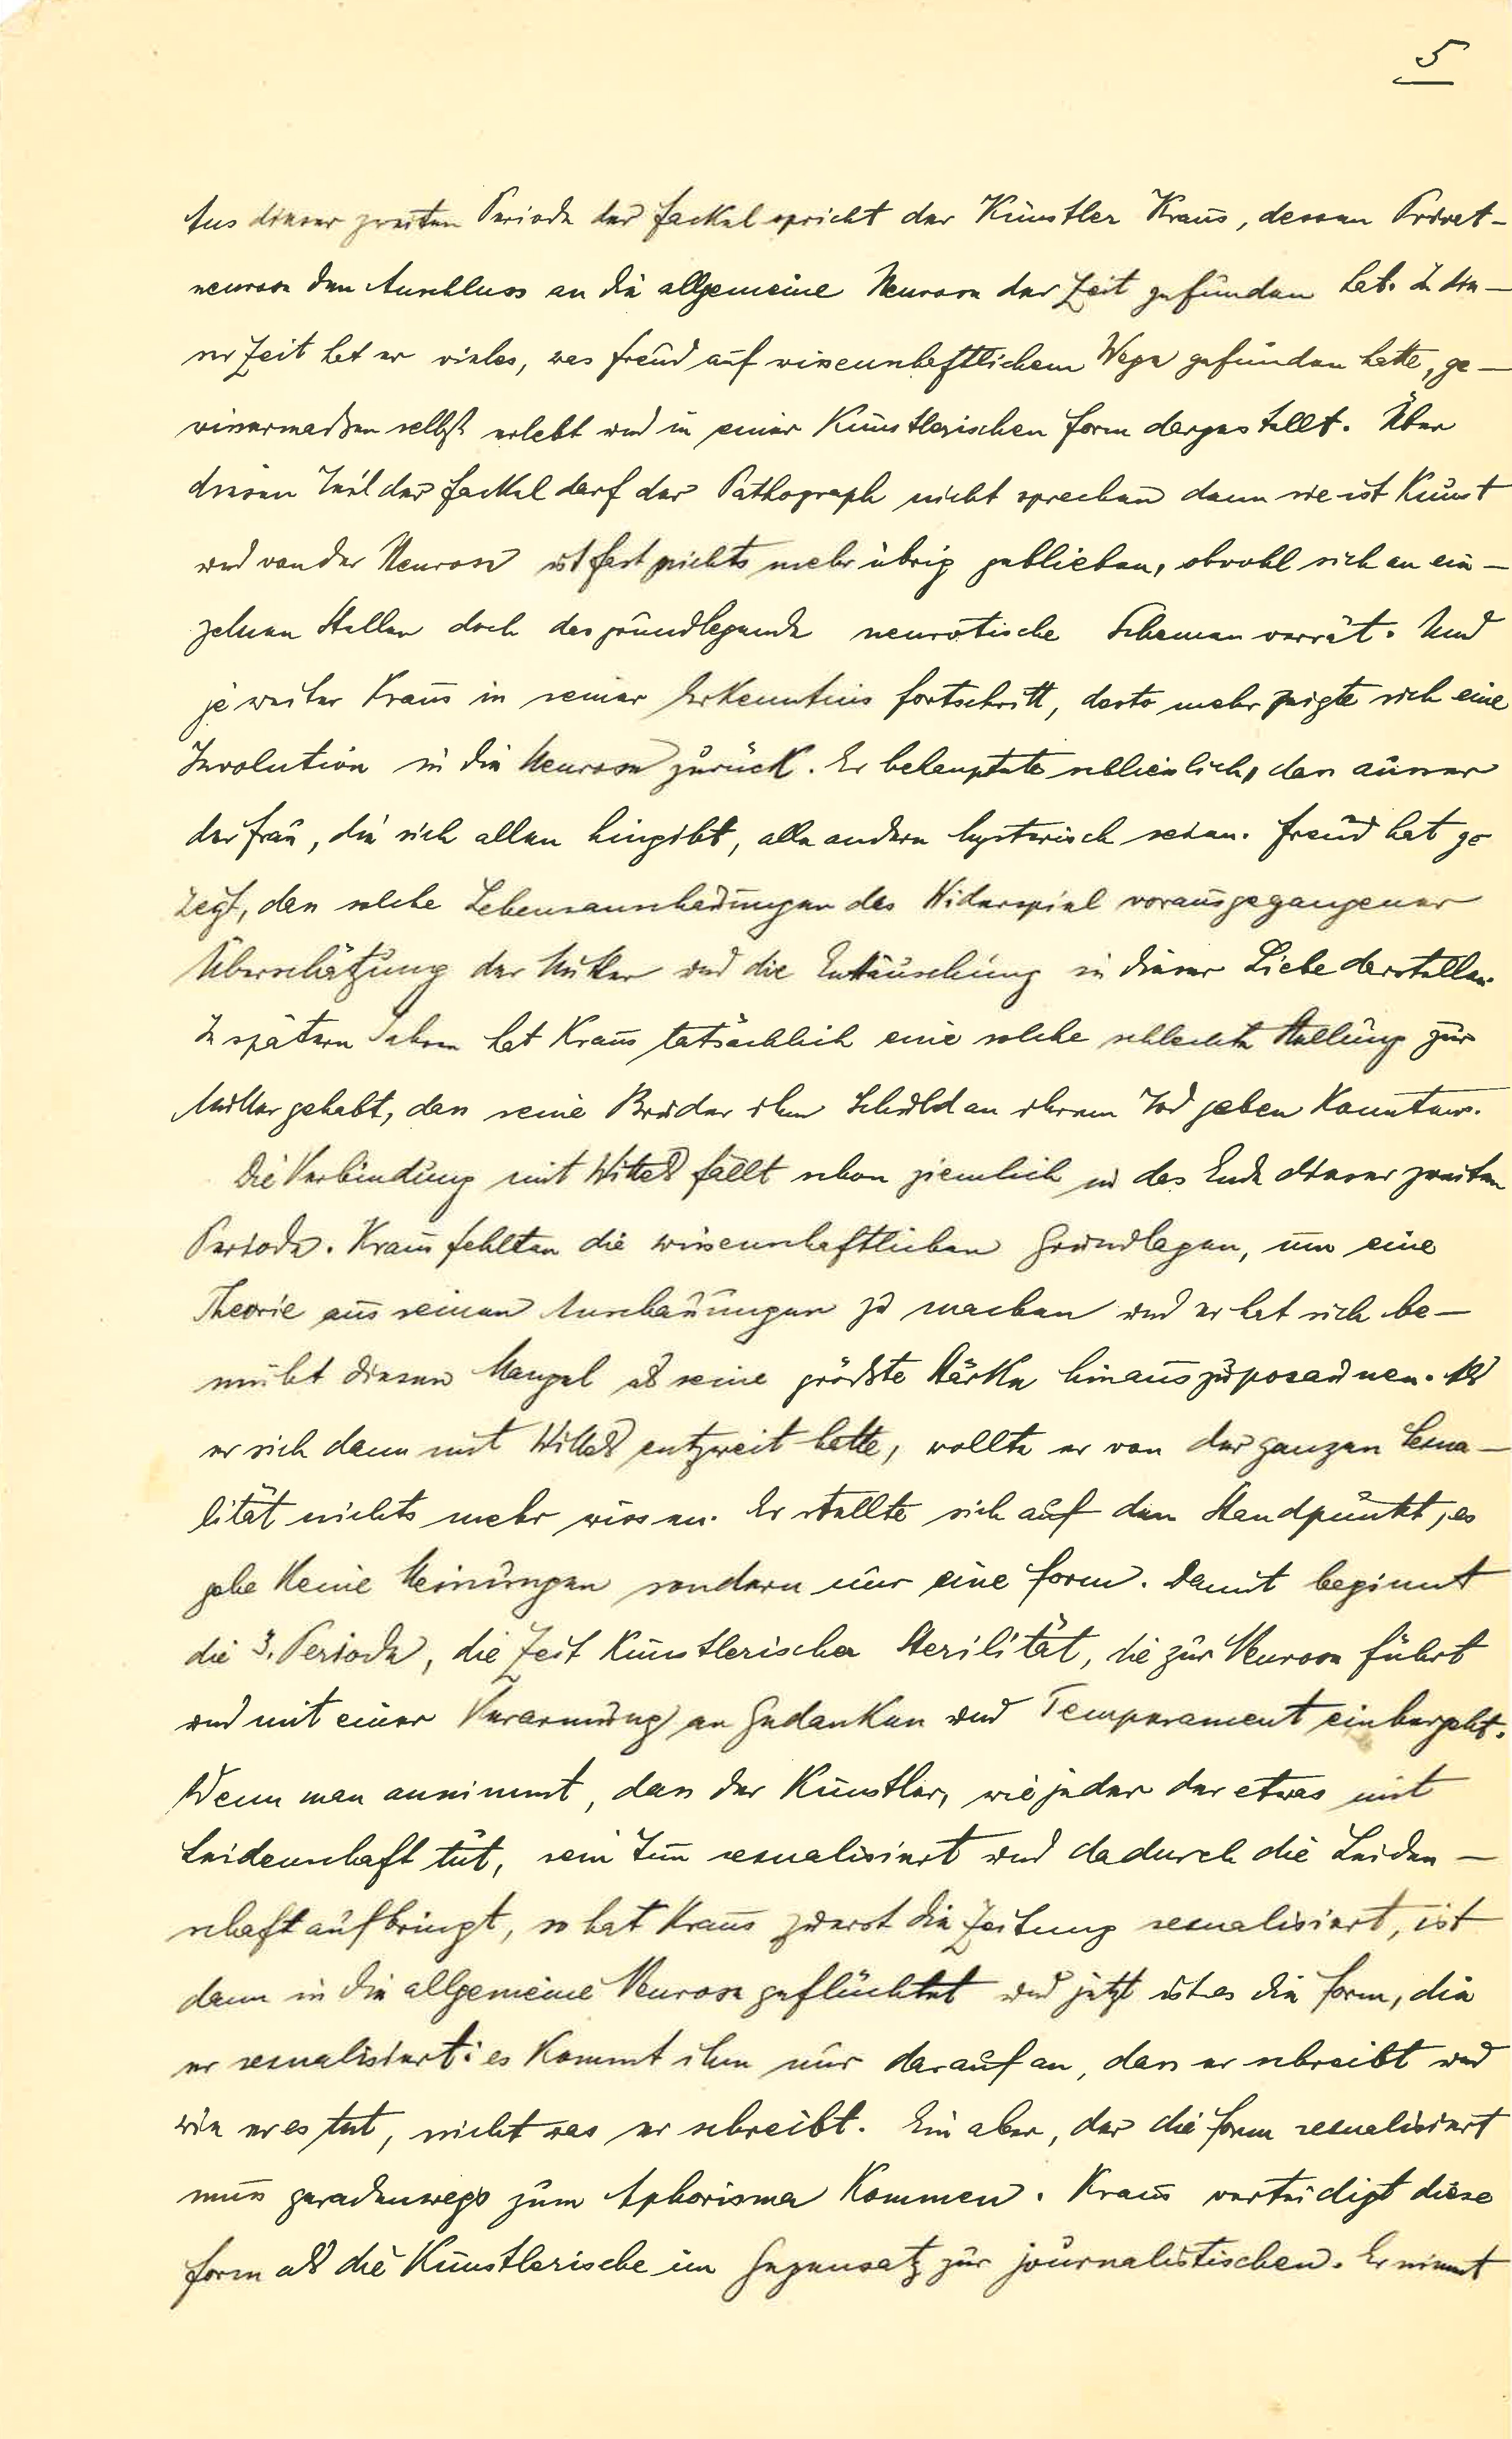 5
Aus dieser zweiten Periode der Fackel spricht der Künstler Kraus, dessen Privat-
neurose den Anschluss an die allgemeine Neurose der Zeit gefunden hat. In die-
ser Zeit hat er vieles, was Freud auf wissenschaftlichem Wege gefunden hatte, ge-
wissermaßen selbst erlebt und in einer künstlerischen Form dargestellt. Über
diesen Teil der Fackel darf der Pathograph nicht sprechen denn sie ist Kunst
und von der Neurose ist fast nichts mehr übrig geblieben, obwohl sich an ein-
zelnen Stellen doch das grundlegende neurotische Schema verrät. Und
je weiter Kraus in seiner Erkenntnis fortschritt, desto mehr zeigte sich eine
Involution in die Neurose zurück. Er behauptete schliesslich, dass ausser
der Frau, die sich allen hingibt, alle andern hysterisch seien. Freud hat ge
zeigt, dass solche Lebensanschauungen das Widerspiel vorausgegangener
Überschätzung der Mutter und die Enttäuschung in dieser Liebe darstellen.
In spätern Jahren hat Kraus tatsächlich eine solche schlechte Stellung zur
Mutter gehabt, dass seine Brüder ihm Schuld an ihrem Tod geben konnten.
Die Verbindung mit Wittels fällt schon ziemlich in das Ende dieser zweiten
Periode. Kraus fehlten die wissenschaftlichen Grundlagen, um eine
Theorie aus seinen Anschauungen zu machen und er hat sich be-
müht diesen Mangel als seine größte Stärke hinauszuposaunen. Als
er sich dann mit Wittels entzweit hatte, wollte er von der ganzen Sexua-
lität nichts mehr wissen. Er stellte sich auf den Standpunkt, es
gebe keine Meinungen sondern nur eine Form. Damit beginnt
die 3. Periode, die Zeit künstlerischer Sterilität, die zur Neurose führt
und mit einer Verarmung an Gedanken und Temperament einhergeht.
Wenn man annimmt, dass der Künstler, wie jeder der etwas mit
Leidenschaft tut, sein Tun sexualisiert und dadurch die Leiden-
schaft aufbringt, so hat Kraus zuerst die Zeitung sexualisiert, ist
dann in die allgemeine Neurose geflüchtet und jetzt ist es die Form, die
er sexualisiert: es kommt ihm nur darauf an, dass er schreibt und
wie er es tut, nicht was er schreibt. Ein aber, der die Form sexualisiert
muss geradenwegs zum Aphorisma kommen. Kraus verteidigt diese
Form als die künstlerische im Gegensatz zur journalistischen. Er nimmt